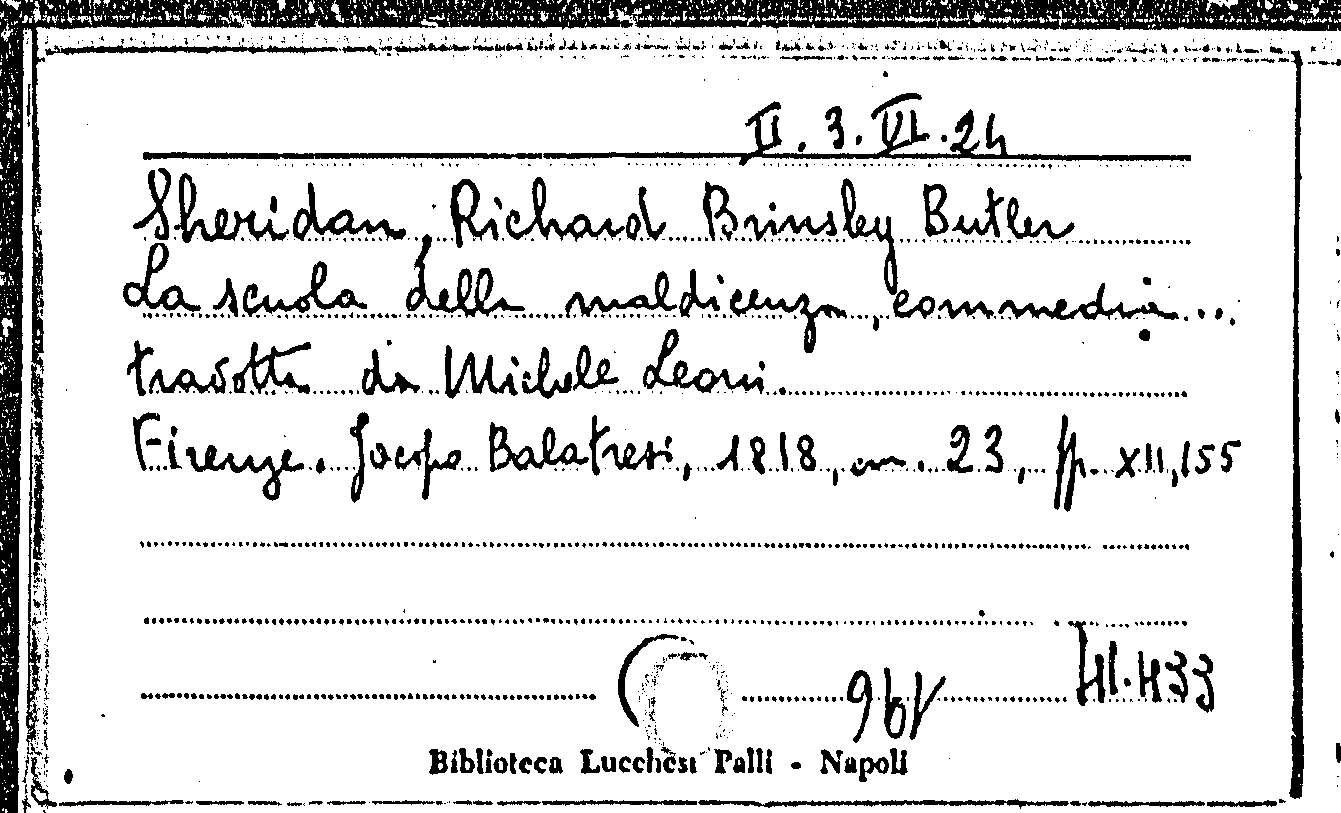 II. 3. VI. 24
Sheridan, Richard Brinsley Butler
La scuola della maldicenza, commedia...
tradotta da Michele Leoni.
Firenze. Jacopo Balatresi, 1818, cm. 23, pp. XII, 155
41.433
Biblioteca Lucchesi Palli - Napoli